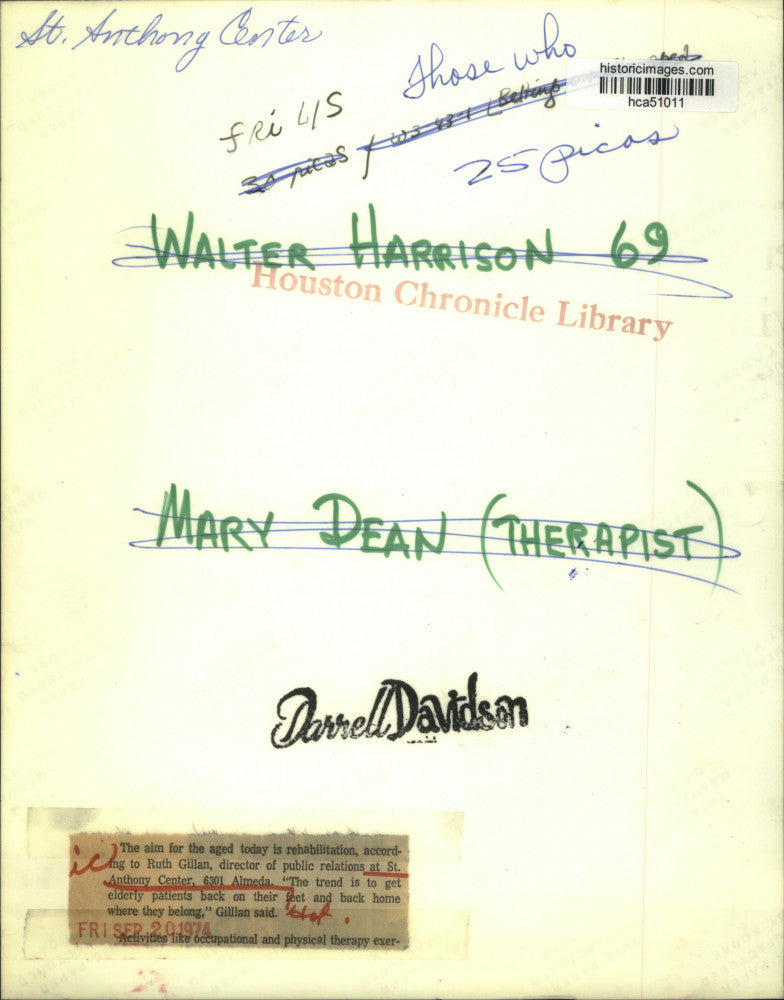 St. Anthony Center
Those who
historicimages.com
hca51011
FRi L/S
30 picas / W3 43-1 (Belting
25 picas
WALTER HARRISON 69
Houston Chronicle Library
MARY DEAN (THERAPIST)
Darrell Davidson
The aim for the aged today is rehabilitation, accord-
ing to Ruth Gillan, director of public relations at St.
Anthony Center, 6301 Almeda. "The trend is to get
elderly patients back on their feet and back home
where they belong," Gilllan said.
FRI SEP 20 1974
Activities like occupational and physical therapy exer-